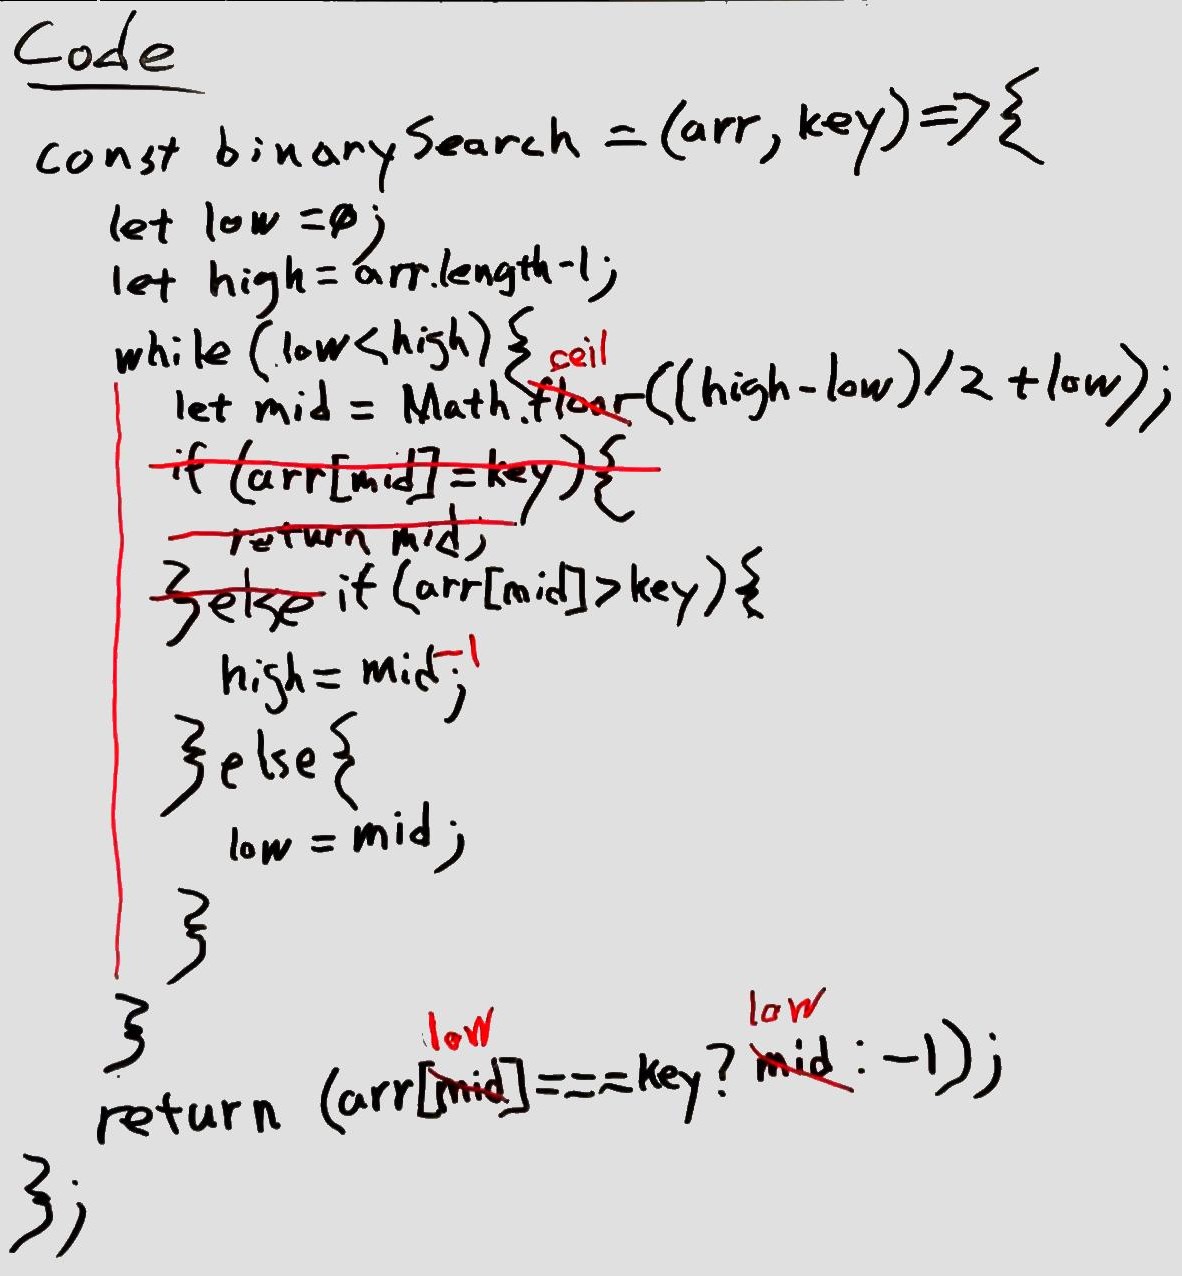 Code
const binarySearch = (arr, key) => {
let low = 0;
let high = arr.length-1;
while (low < high) {
ceil
let mid = Math.floor((high-low)/2 + low);
if (arr[mid] = key) {
return mid;
} else if (arr[mid] > key) {
high = mid-1;
} else {
low = mid;
}
}
low low
return (arr[mid] === key ? mid : -1);
};